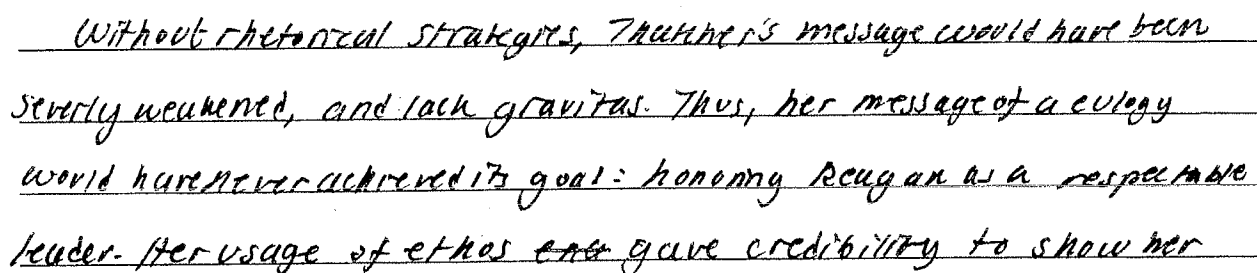 Without rhetorical strategies, Thatcher's message would have been
severly weakened, and lack gravitas. Thus, her message of a eulogy
would have never achieved its goal: honoring Reagan as a respectable
leader. Her usage of ethos gave credibility to show her